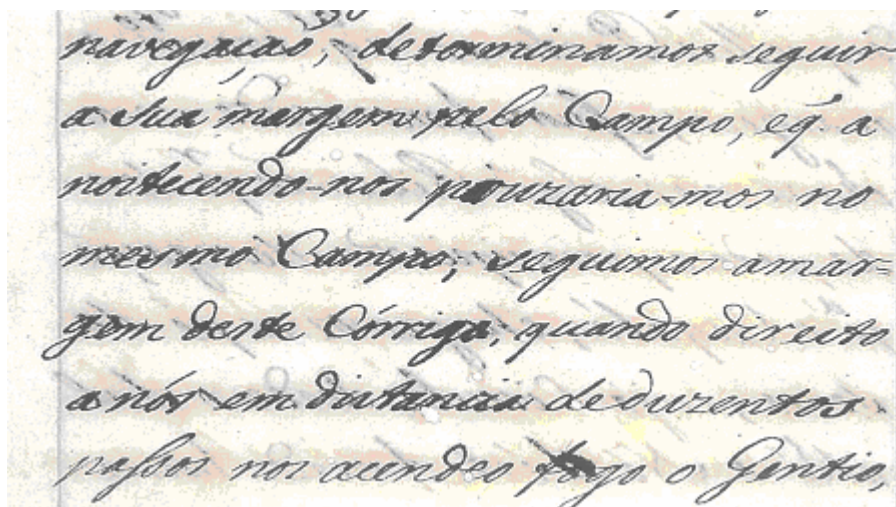 navegaçaõ, determinamos seguir
a sua margem pelo Campo, e q̃. a
noitecendo-nos pouzaria-mos no
mesmo Campo; seguimos amar=
gem deste Córrigo, quando direito
a nós em distancia deduzentos
passos nos acendeo fogo o Gentio,